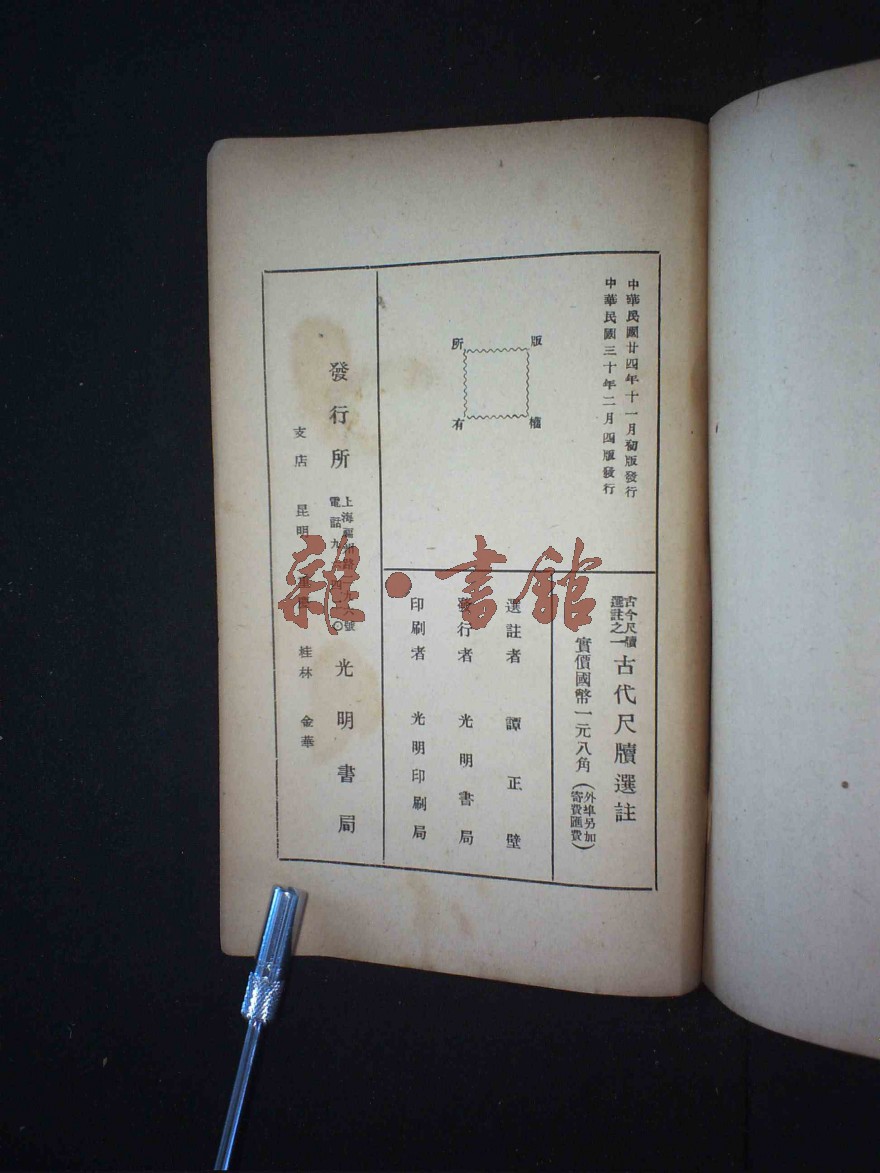 中華民國廿四年十一月初版發行
中華民國三十年二月四版發行
版權所有
古今尺牘
選註之一
古代尺牘選註
實價國幣一元八角
(外埠另加
寄費匯費)
選註者 譚正璧
發行者 光明書局
印刷者 光明印刷局
發行所
上海福州路
號
電話九
四
〇
光明書局
支店 昆明 桂林 金華
雜·書館